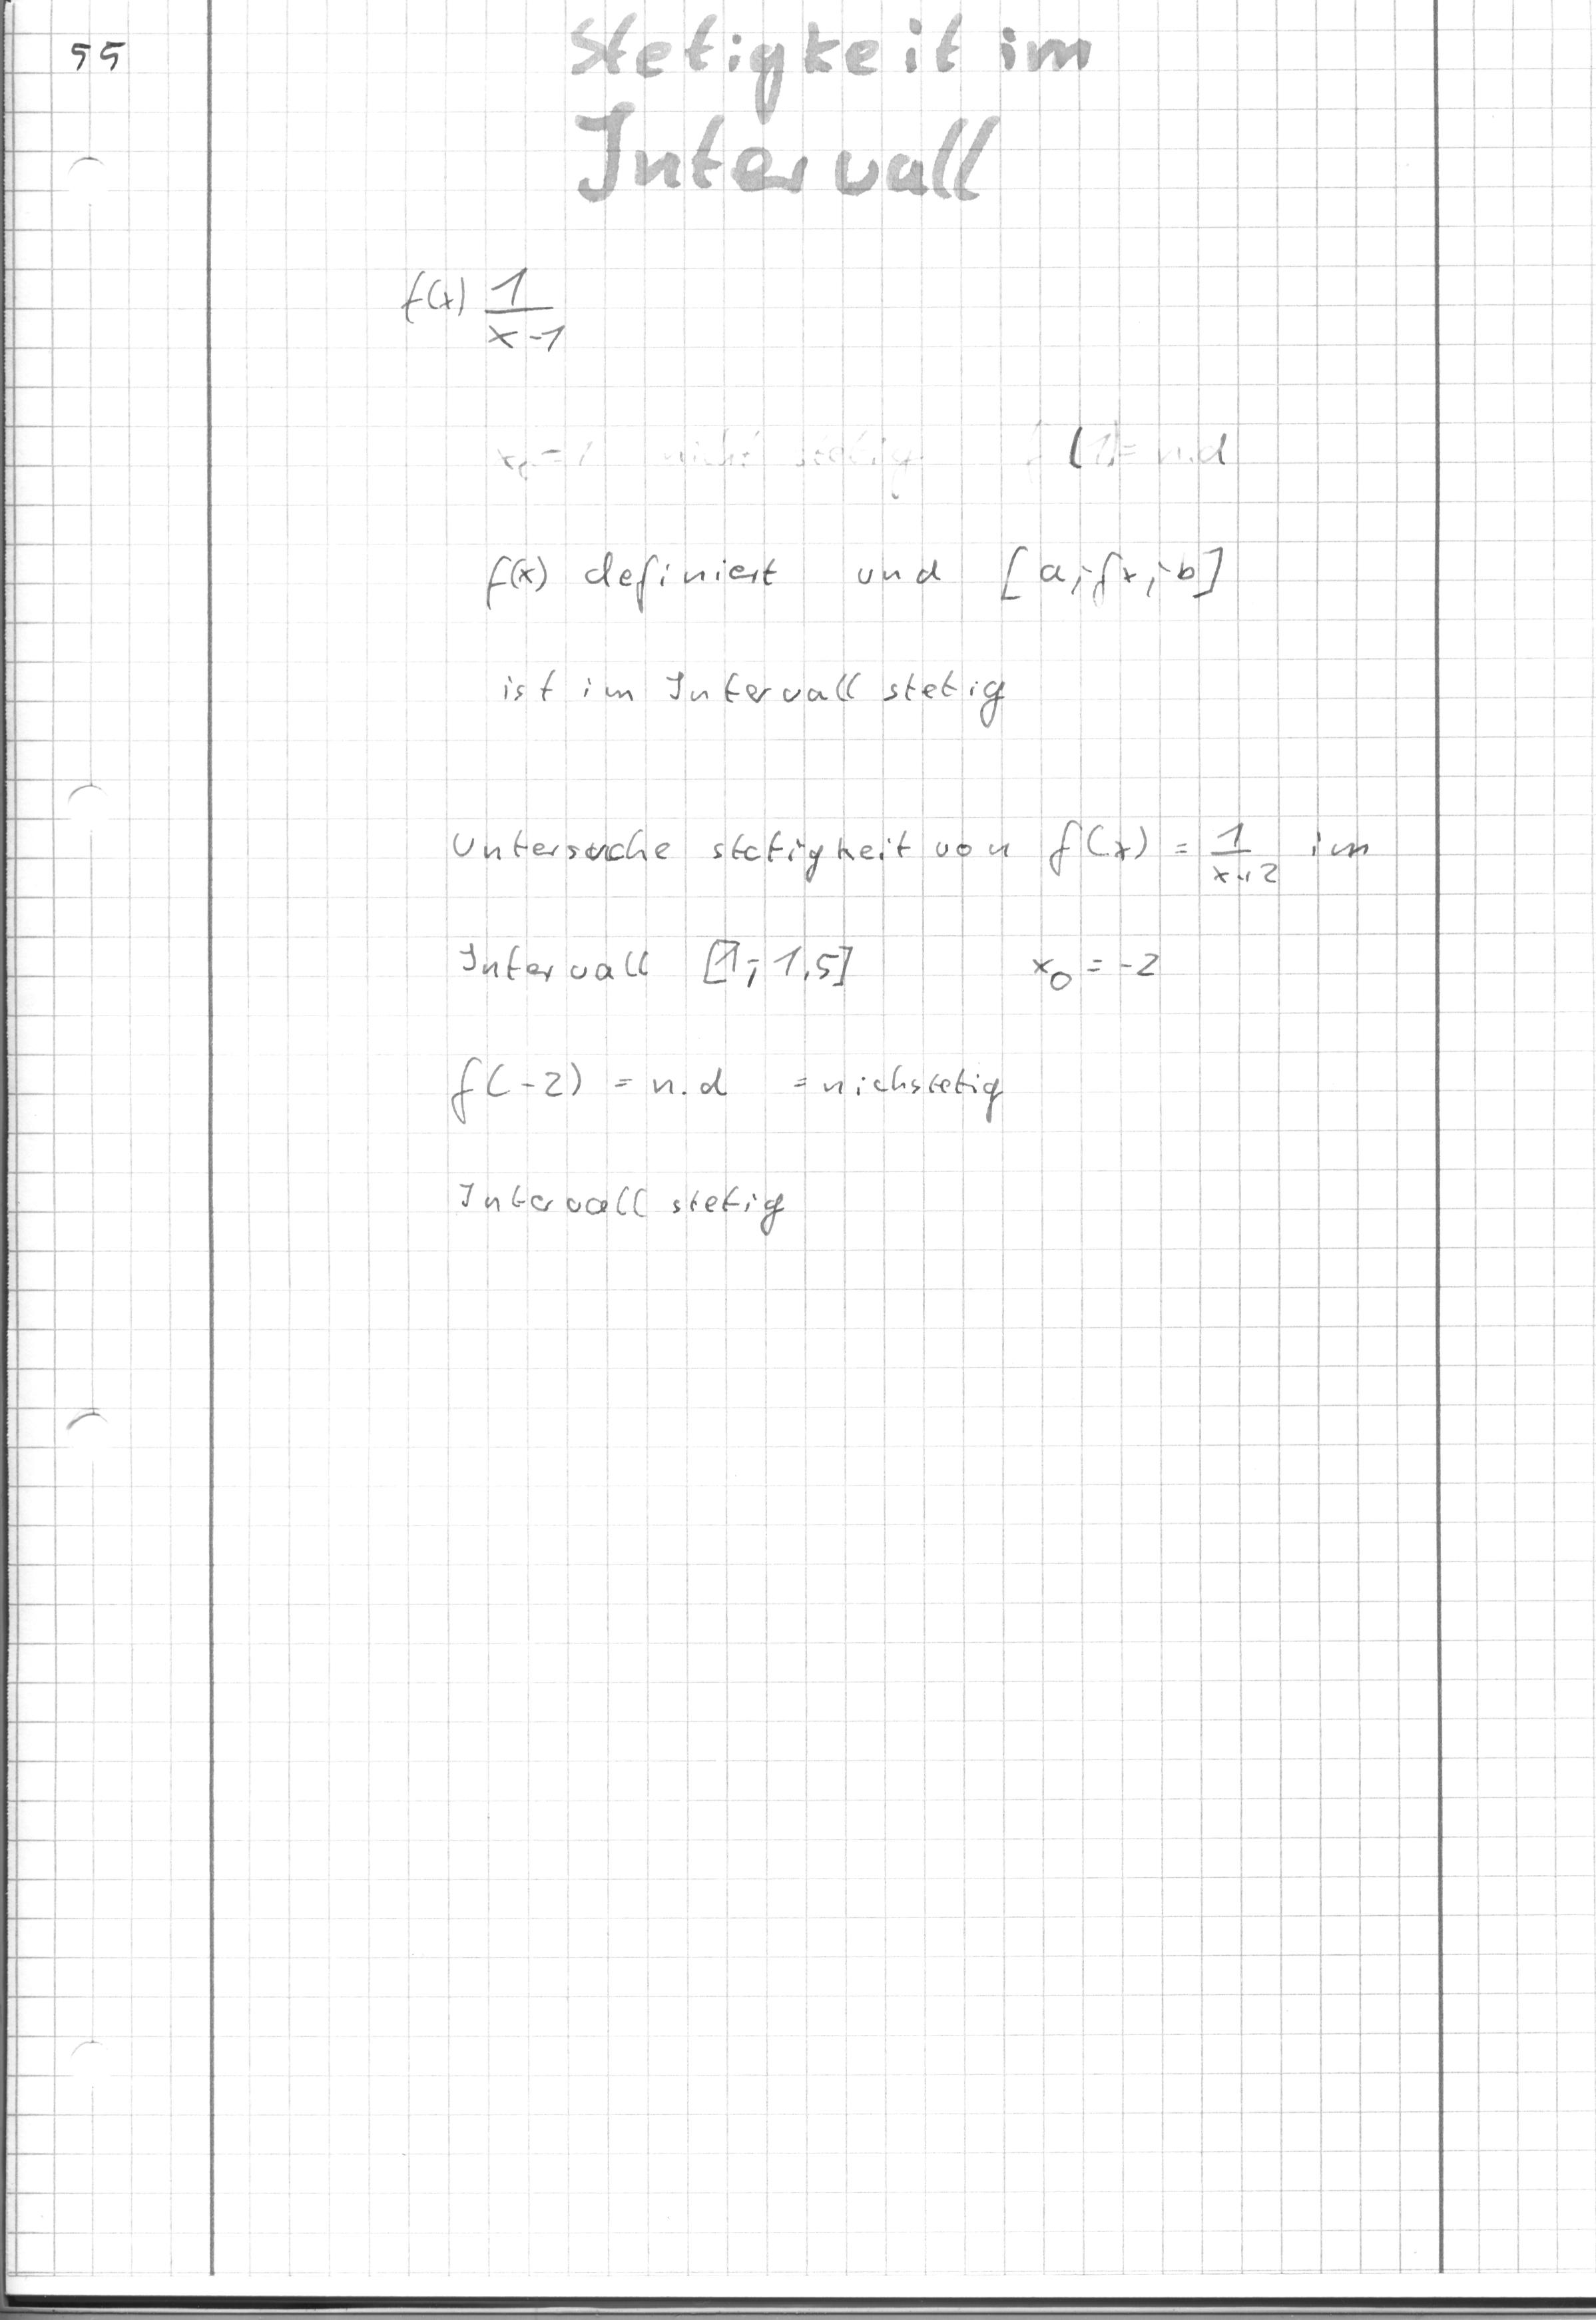 55
Stetigkeit im
Intervall
f(x) 1/(x-1)
x₀=1 nicht stetig f(1)= n.d
f(x) definiert und [a;fx;b]
ist im Intervall stetig
Untersuche stetigkeit von f(x) = 1/(x+2) im
Intervall [1; 1,5] x₀ = -2
f(-2) = n.d = nichstetig
Intervall stetig